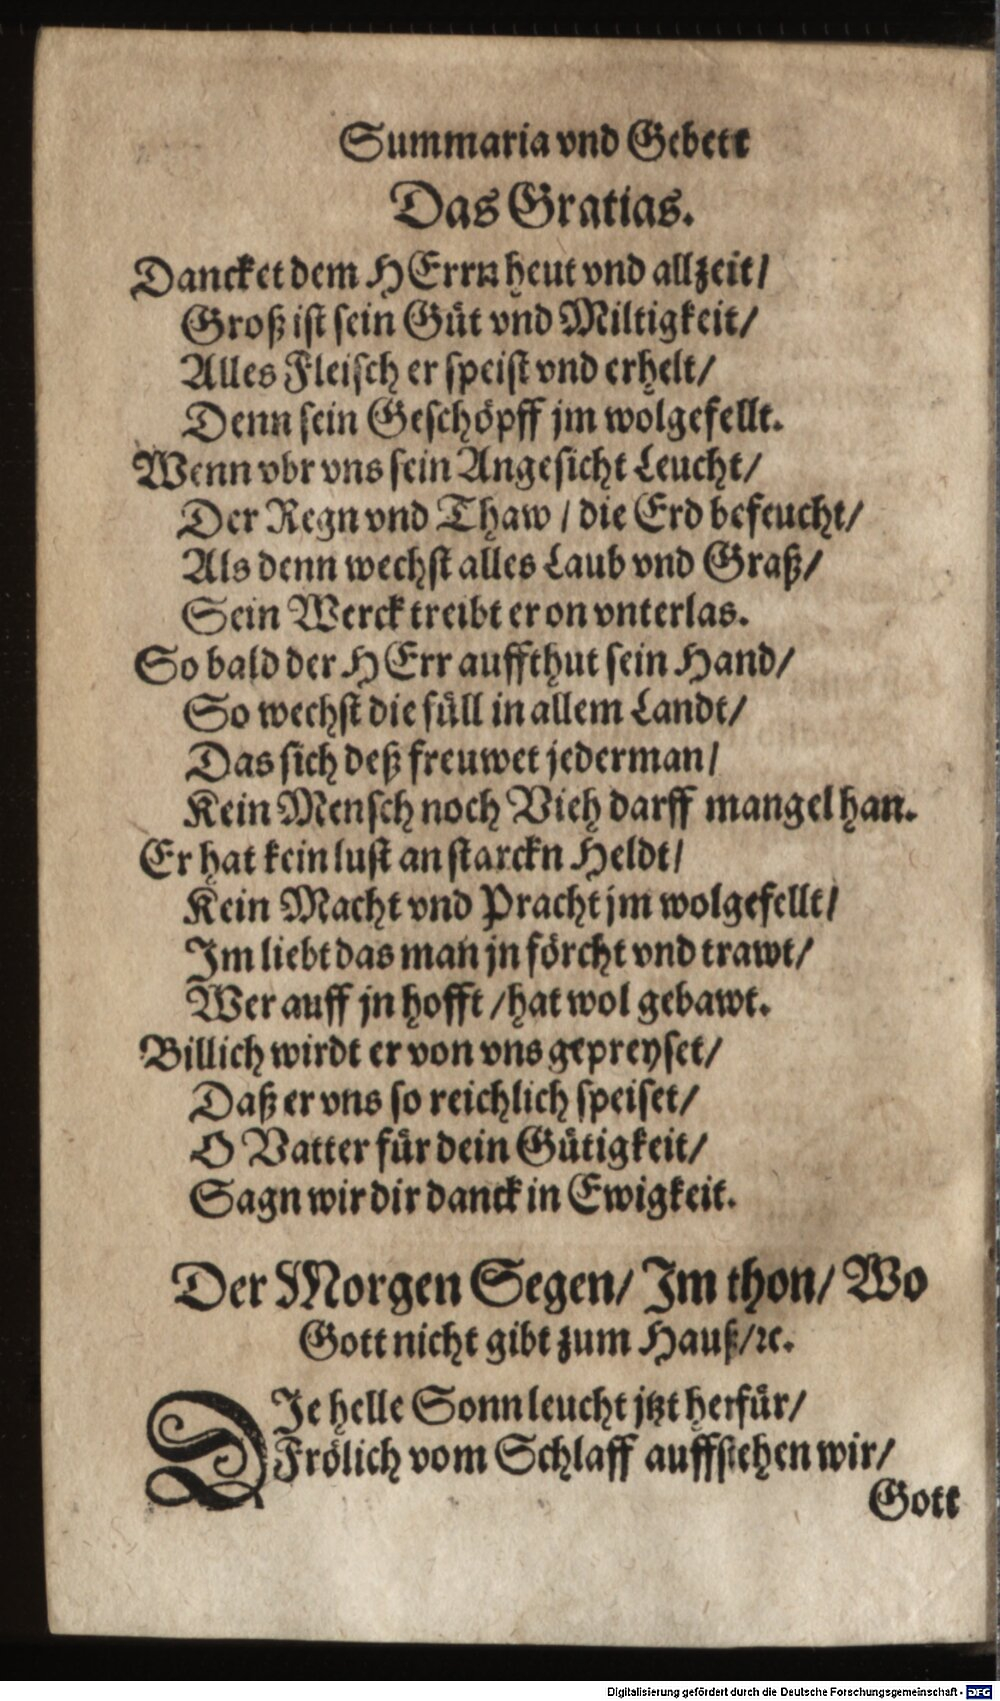 Summaria vnd Gebett
Das Gratias.
Dancket dem HErrn heut vnd allzeit/
Groß ist sein Güt vnd Miltigkeit/
Alles Fleisch er speist vnd erhelt/
Denn sein Geschöpff jm wolgefellt.
Wenn vbr vns sein Angesicht Leucht/
Der Regn vnd Thaw / die Erd befeucht/
Als denn wechst alles Laub vnd Graß/
Sein Werck treibt er on vnterlas.
So bald der HErr auffthut sein Hand/
So wechst die füll in allem Landt/
Das sich deß freuwet jederman/
Kein Mensch noch Vieh darff mangel han.
Er hat kein lust an starckn Heldt/
Kein Macht vnd Pracht jm wolgefellt/
Im liebt das man jn förcht vnd trawt/
Wer auff jn hofft /hat wol gebawt.
Billich wirdt er von vns gepreyset/
Daß er vns so reichlich speiset/
O Vatter für dein Gütigkeit/
Sagn wir dir danck in Ewigkeit.
Der Morgen Segen/ Im thon/ Wo
Gott nicht gibt zum Hauß/ꝛc.
DIe helle Sonn leucht jtzt herfür/
Frölich vom Schlaff auffstehen wir/
Gott
Digitalisierung gefördert durch die Deutsche Forschungsgemeinschaft - DFG